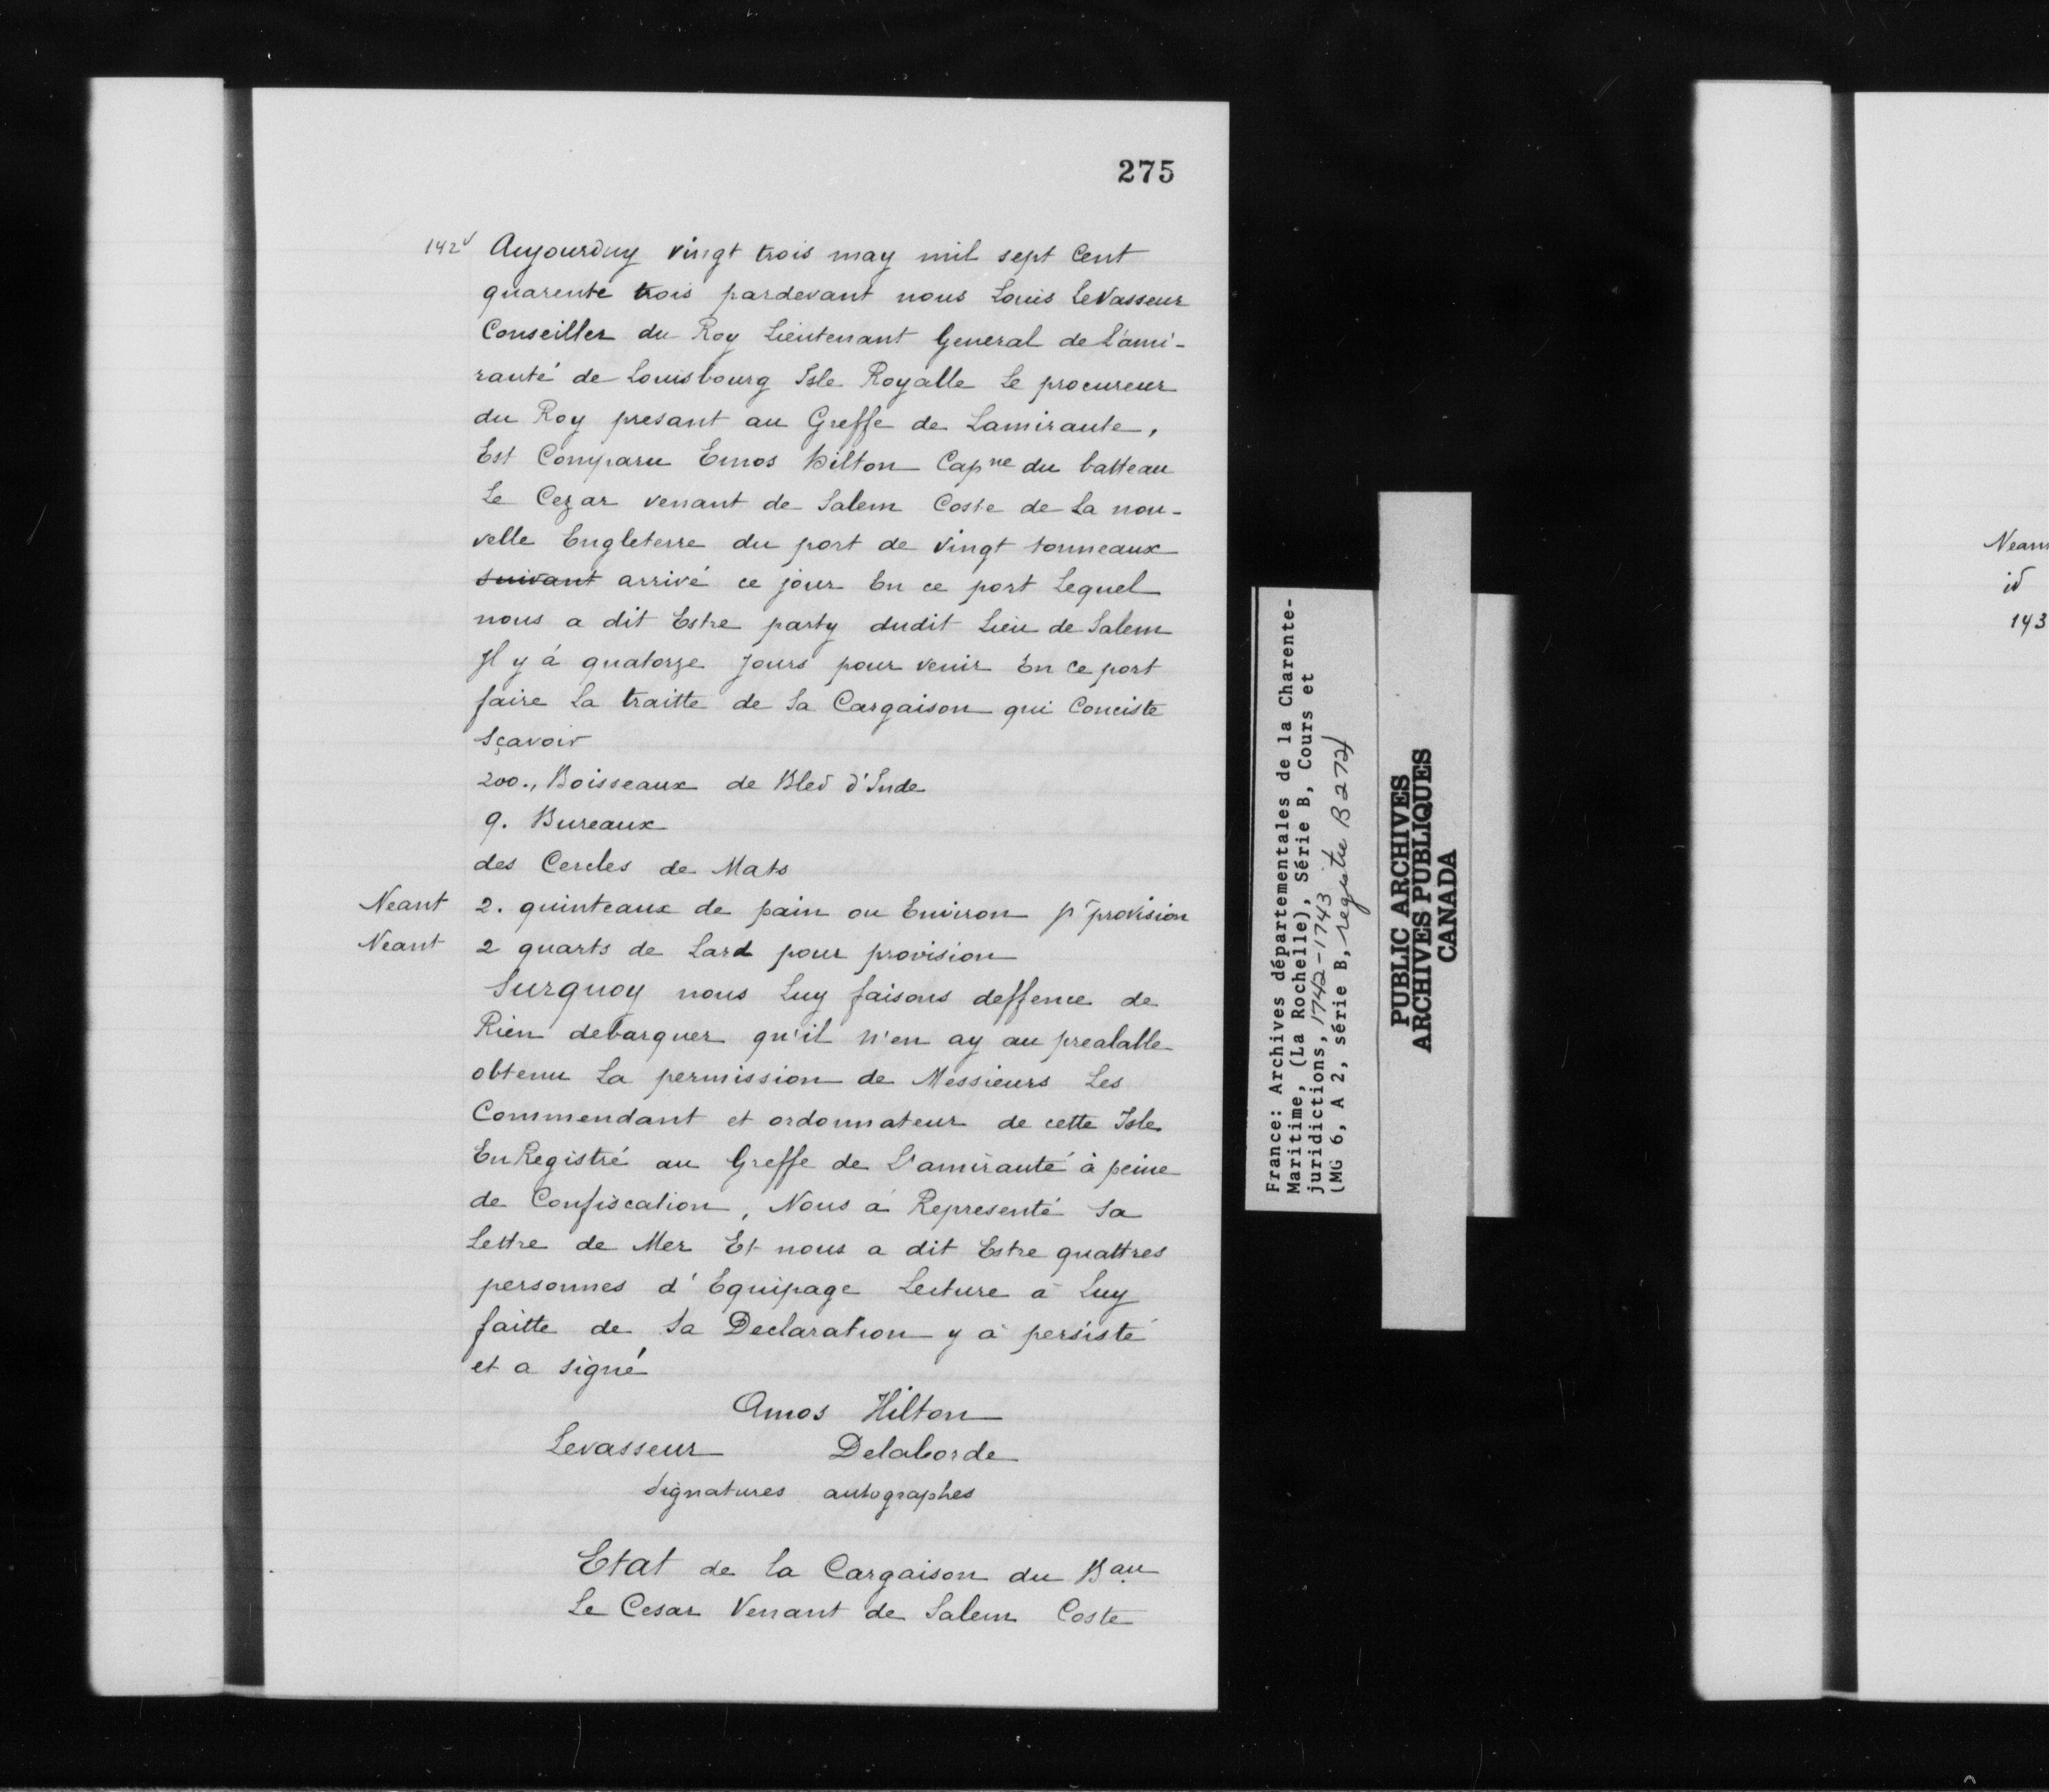 275
142v Aujourduy vingt trois may mil sept Cent
quarente trois pardevant nous Louis LeVasseur
Conseiller du Roy Lieutenant General de L'ami-
rauté de Louisbourg Isle Royalle Le procureur
du Roy presant au Greffe de Lamiraute,
Est Comparu Emos hilton Capne du batteau
Le Cezar venant de Salem Coste de La nou-
velle Engleterre du port de Vingt tonneaux
suivant arrivé ce jour En ce port Lequel
nous a dit Estre party dudit Lieu de Salem
Il y á quatorze Jours pour venir En Ce port
faire La traitte de Sa Cargaison qui Conciste
Sçavoir
200., Boisseaux de Bled d'Inde
9. Bureaux
des Cercles de Mats
Neant 2. quinteaux de pain ou Environ pr provision
Neant 2 quarts de Lard pour provision
Surquoy nous Luy faisons deffence de
Rien debarquer qu'il n'en ay au prealable
obtenu La permission de Messieurs Les
Commendant et ordonnateur de cette Isle
EnRegistré au Greffe de L'amirauté à peine
de Confiscation, Nous á Representé Sa
Lettre de Mer Et nous a dit Estre quattres
personnes d'Equipage Lecture à Luy
faitte de Sa Declaration y à persisté
et a signé
Amos Hilton
Levasseur Delaborde
Signatures autographes
Etat de la Cargaison du Bau
Le Cesar Venant de Salem Coste
France: Archives départementales de la Charente-
Maritime, (La Rochelle), Série B, Cours et
juridictions, 1742-1743
(MG 6, A 2, série B, registre B 272)
PUBLIC ARCHIVES
ARCHIVES PUBLIQUES
CANADA
id
143